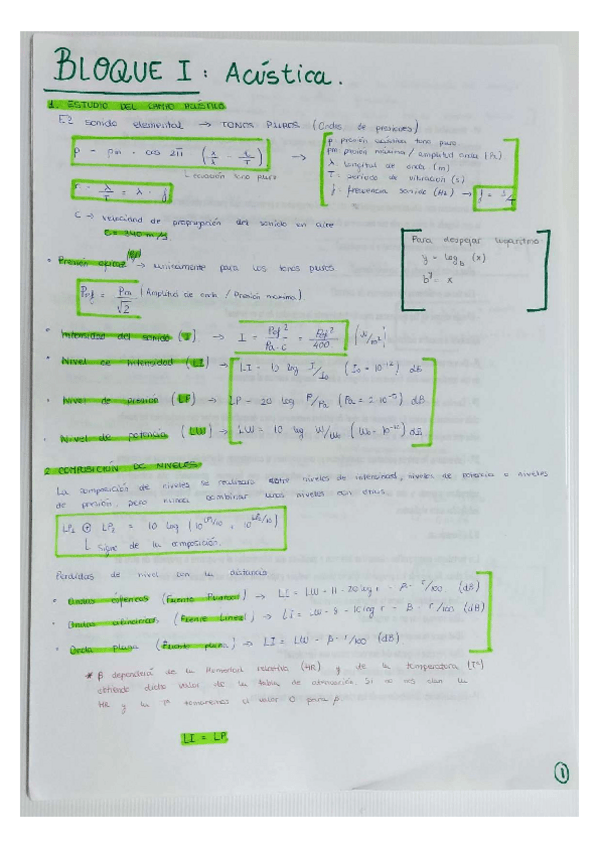 BLOQUE I : Acústica.
1. ESTUDIO DEL CAMPO ACÚSTICO
El sonido elemental → TONOS PUROS (Ondas de presiones)
p = pm · cos 2π (x/λ - t/T) →
└ ecuación tono puro
p presión acústica tono puro
pm presión máxima / amplitud onda (Pa)
λ longitud de onda (m)
T = período de vibración (s)
f = frecuencia sonido (Hz) →
= λ/T = λ · f
C → velocidad de propagación del sonido en aire
C = 340 m/s
Para despejar logaritmo:
y = log_b (x)
b^y = x
• Presión eficaz → unicamente para los tonos puros
Pef = Pm/√2 (Amplitud de onda / Presión máxima).
• Intensidad del sonido (I) → I = Pef²/Pa·c = Pef²/400 (W/m²)
• Nivel de intensidad (LI) → LI = 10 log I/I₀ (I₀ = 10⁻¹²) dB
• Nivel de presión (LP) → LP = 20 log P/Pa (Pa = 2·10⁻⁵) dB
• Nivel de potencia (LW) → LW = 10 log W/W₀ dB
2 COMPOSICIÓN DE NIVELES
La composición de niveles se realizará entre niveles de intensidad, niveles de potencia o niveles
de presión, pero nunca combinar unos niveles con otros.
LP₁ ⊕ LP₂ = 10 log (10^LP₁/10 + 10^LP₂/10)
└ signo de la composición.
Pérdidas de nivel con la distancia
• Ondas esféricas (Fuente Puntual) → LI = LW - 11 - 20 log r - β · r/100 (dB)
• Ondas cilíndricas (Fuente Lineal) → LI = LW - 8 - 10 log r - β · r/100 (dB)
• Onda plana (Fuente plana) → LI = LW - β · r/100 (dB)
* β dependerá de la Humedad relativa (HR) y de la temperatura (Tª)
obtiendo dicho valor de la tabla de atenuación. Si no nos dan la
HR y la Tª tomaremos el valor 0 para β.
LI = LP
1